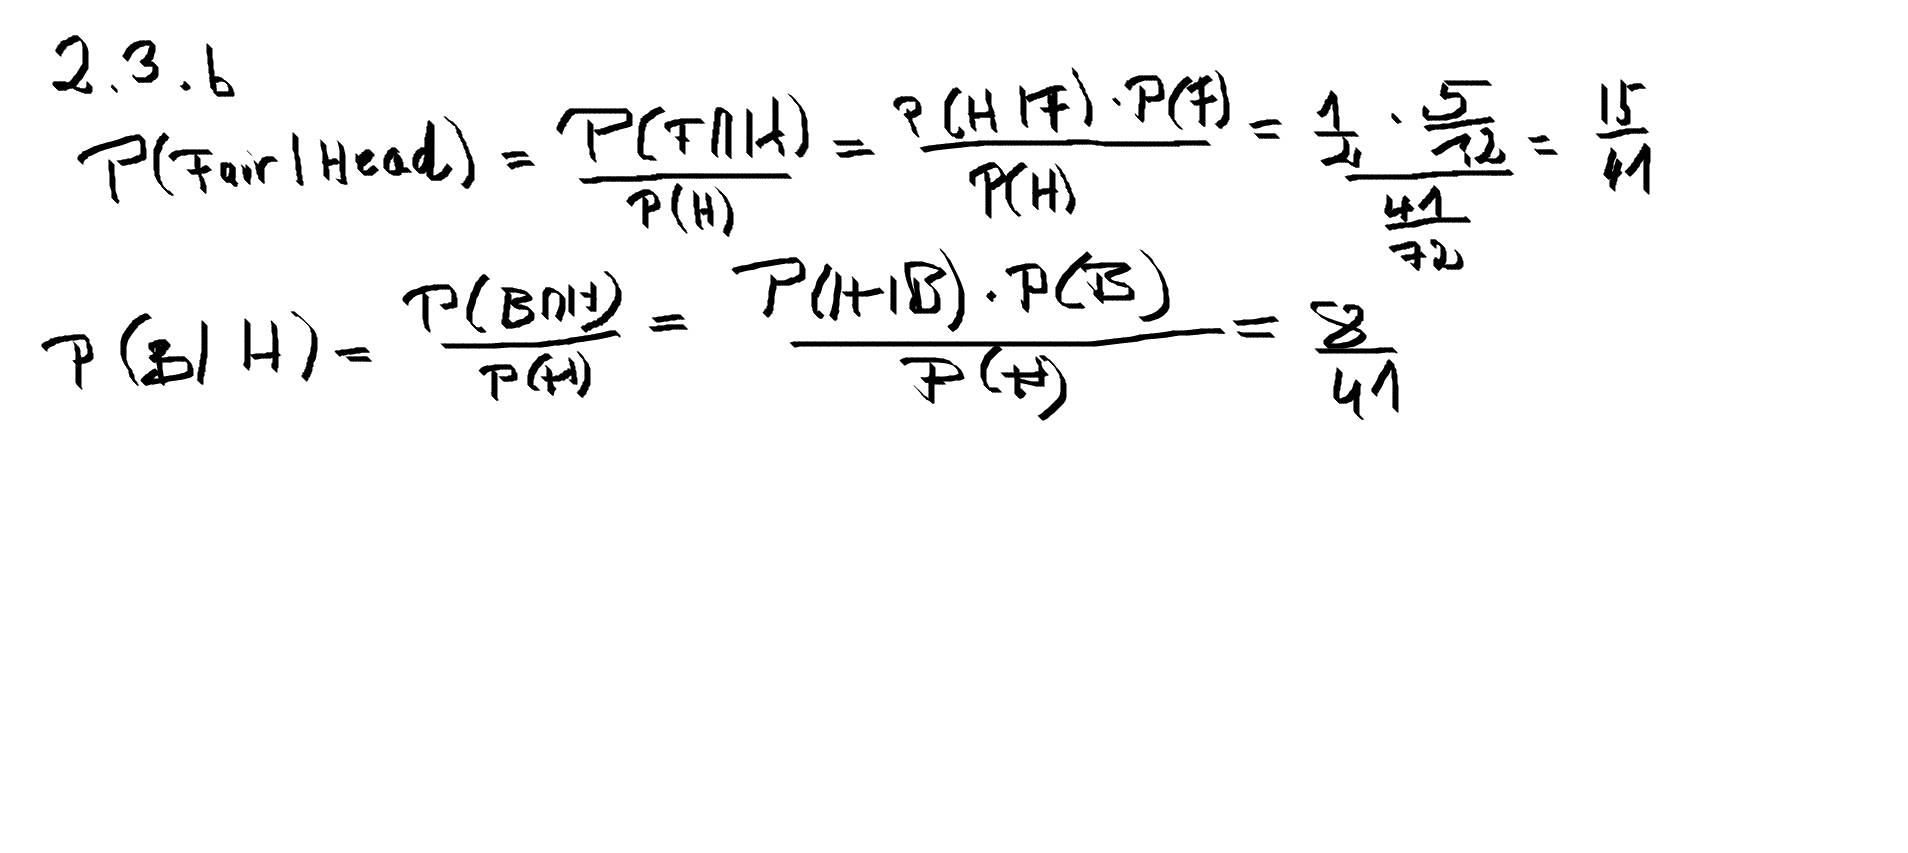 2.3.b
P(Fair | Head) = P(F∩H) / P(H) = P(H|F) · P(F) / P(H) = (1/2 · 5/12) / (41/72) = 15/41
P(B | H) = P(B∩H) / P(H) = P(H|B) · P(B) / P(H) = 8/41